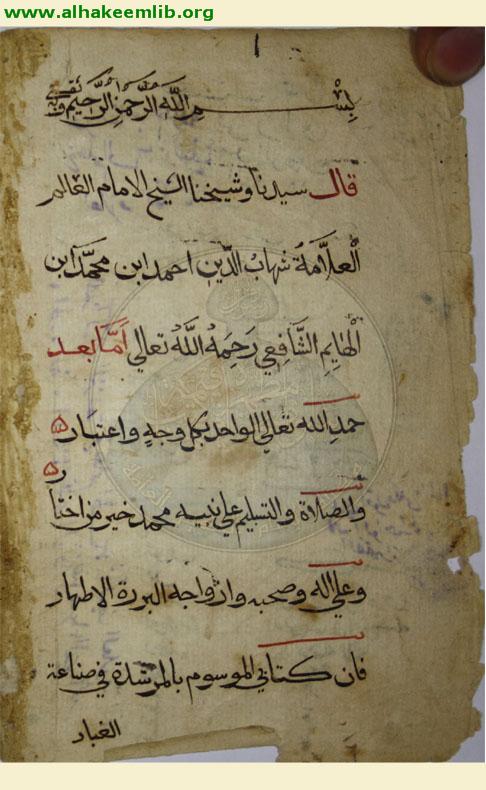 www.alhakeemlib.org
١
بِسْمِ اللَّهِ الرَّحْمَنِ الرَّحِيمِ
قال سيدنا وشيخنا الشيخ الامام العالم
العلَّامةُ شهابُ الدّين احمد ابن محمَّد ابن
الهايم الشَّافِعي رَحِمَهُ اللَّهُ تعالي أمَّا بعد
حمدِ الله تعالي الواحد بكل وجهٍ واعتبار
والصلاة والتسليم علي نبيه محمد خير من اختار
وعلي اله وصحبه وازواجه البررة الاطهار
فان كتابي الموسوم بالمرشدة في صناعة
الغبار